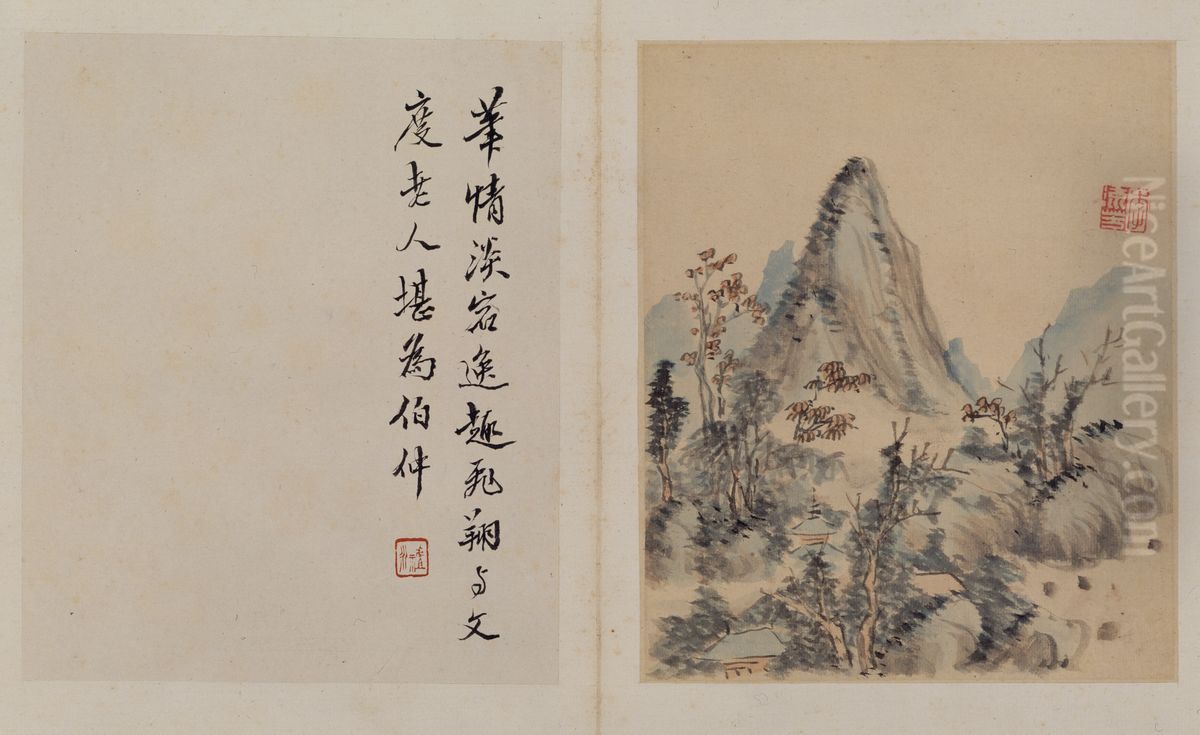 華情淡宕逸趣飛翔与文
度老人堪為伯仲
NiceArtGallery.com